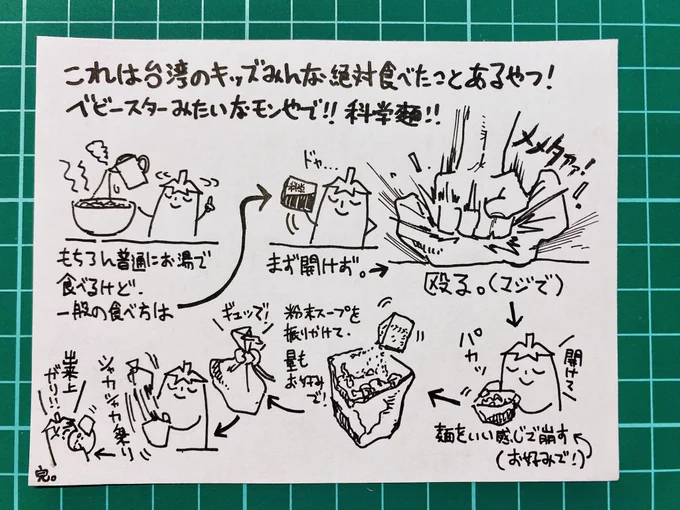 これは台湾のキッズみんな絶対食べたことあるやつ!
ベビースターみたいなモンやで!!科学麺!!
もちろん普通にお湯で
食べるけど、
一般の食べ方は
ドヤ…
まず開けず。
メメタァァ!
殴る。(マジで)
開けて
パカッ
麺をいい感じで崩す
(お好みで!)
粉末スープを
振りかけて、
量も
お好みで!
ギュッで!
シャカシャカ乗り
出来上
がり!!!
完。